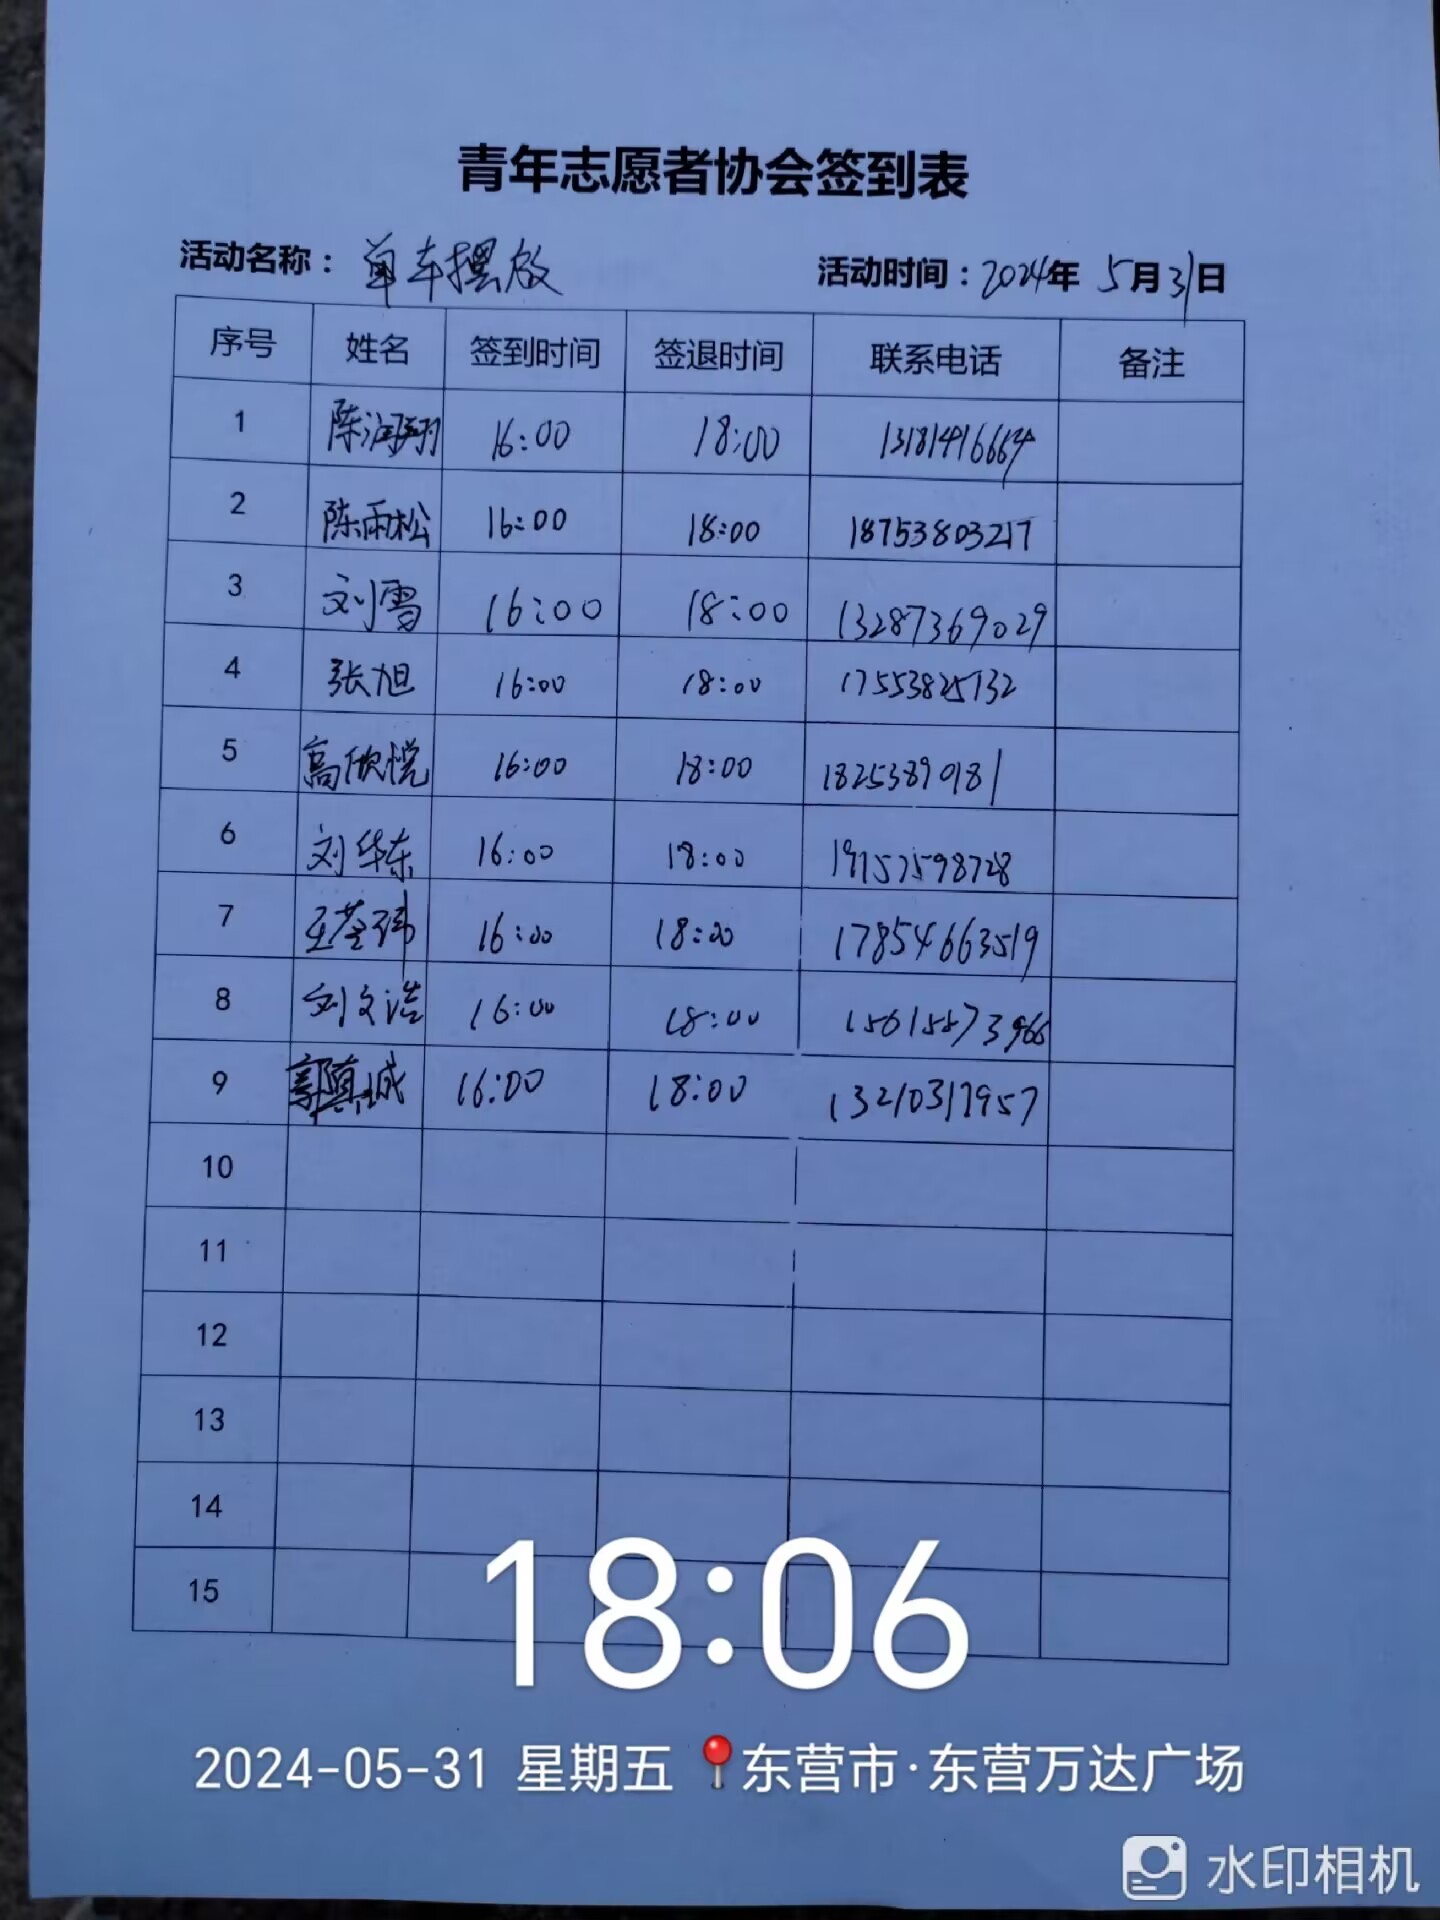 青年志愿者协会签到表
活动名称： 单车摆放 活动时间：2024年 5月31日
序号 姓名 签到时间 签退时间 联系电话 备注
1 陈润翔 16:00 18:00 13181416664
2 陈雨松 16:00 18:00 18753803217
3 刘雪 16:00 18:00 13287369029
4 张旭 16:00 18:00 17553825732
5 高欣悦 16:00 18:00 18253890181
6 刘华东 16:00 18:00
7 16:00 18:00 17854663519
8 刘文浩 16:00 18:00 15615573966
9 郭真诚 16:00 18:00 13210317957
10
11
12
13
14
15
18:06
2024-05-31 星期五 东营市·东营万达广场
水印相机